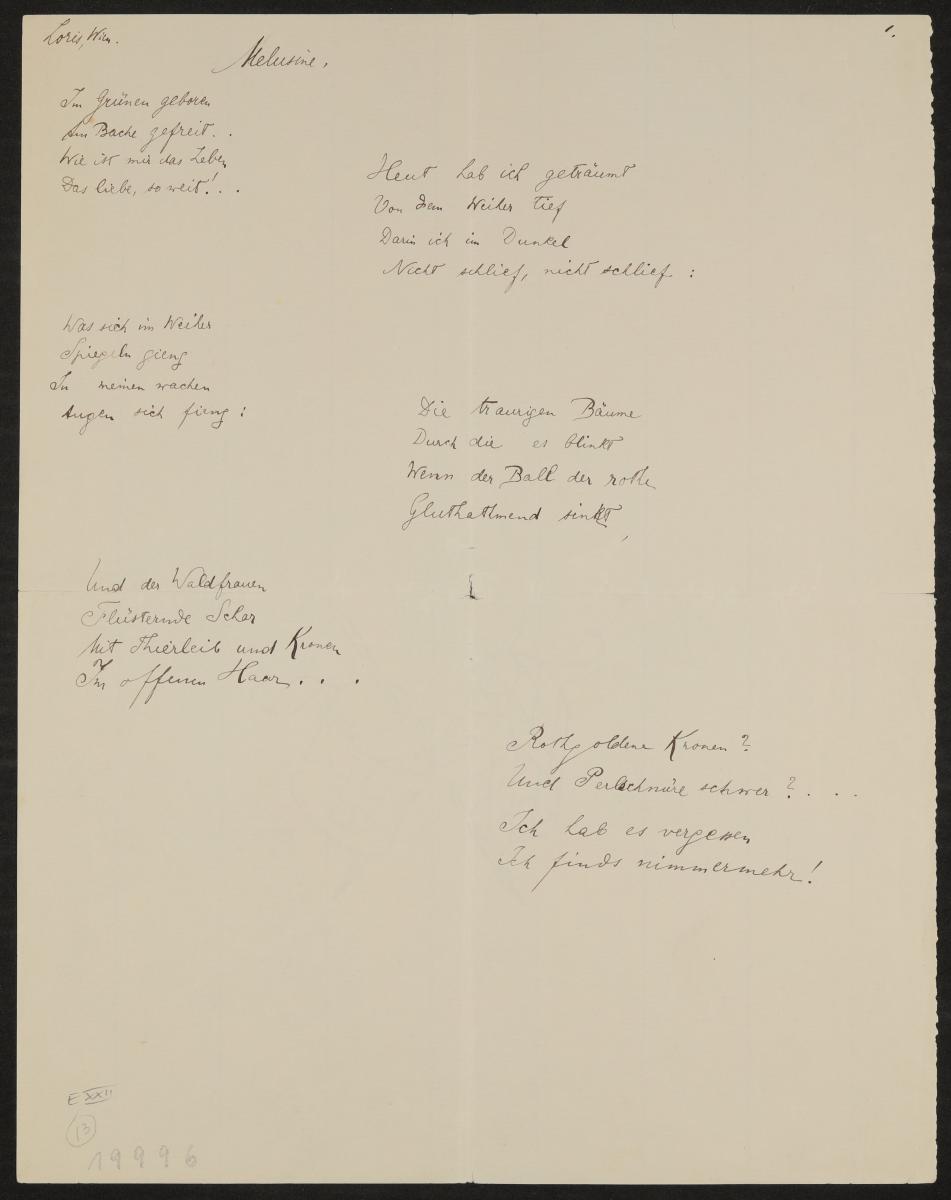 Loris, Wien.
1.
Melusine.
Im Grünen geboren
Am Bache gefreit. .
Wie ist mir das Leben
Das liebe, so weit! . .
Heut hab ich geträumt
Von dem Weiher tief
Darin ich im Dunkel
Nicht schlief, nicht schlief :
Was sich im Weiher
Spiegeln gieng
In meinen wachen
Augen sich fieng :
Die traurigen Bäume
Durch die es blinkt
Wenn der Ball der rothe
Gluthathmend sinkt,
Und der Waldfrauen
Flüsternde Schar
Mit Thierleib und Kronen
Im offenen Haar . . .
Rothgoldene Kronen ?
Und Perlschnüre schwer ? . . .
Ich hab es vergessen
Ich finds nimmermehr !
E XXII
13
19996